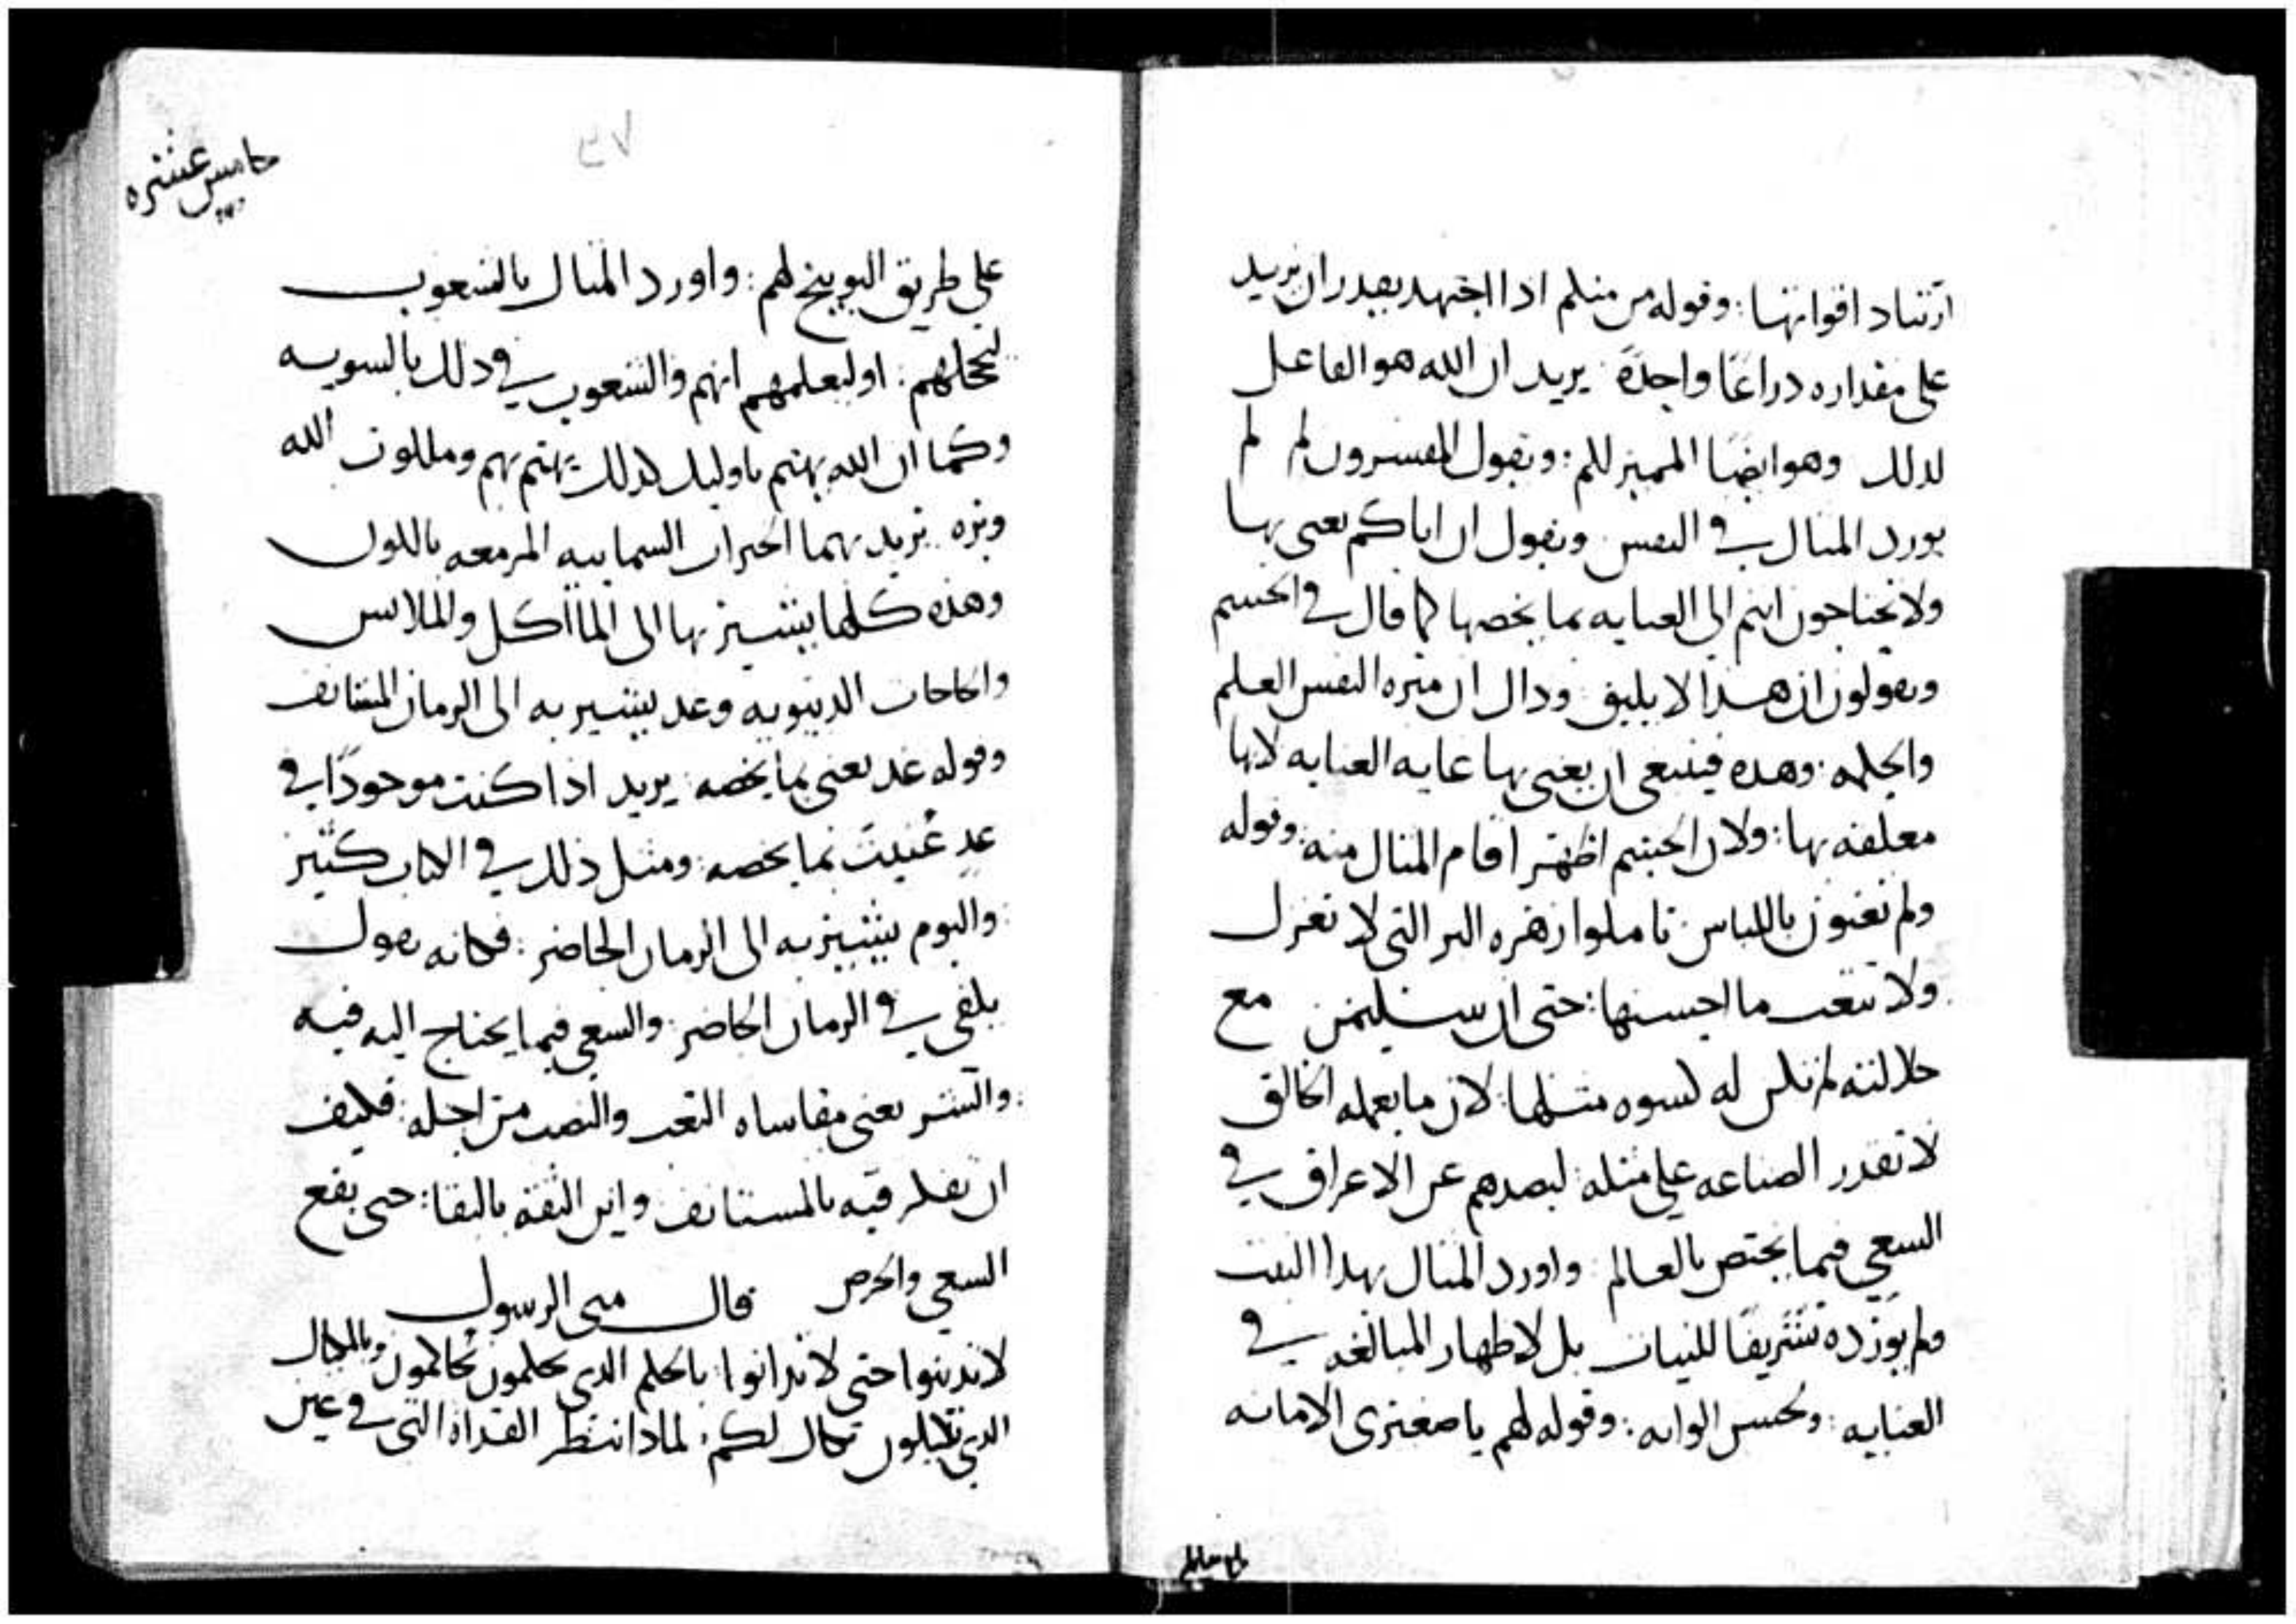 ارتياد اقواتها: وقوله من منكم ادا اجتهد يقدر ان يزيد
على مقداره دراعًا واحدةً يريد ان الله هو الفاعل
لدلك وهو ايضًا المميز للكم: وتقول المفسرون لم لم
يورد المثال في النفس ويقول ان اباكم يعنى بها
ولا تحتاجون انتم الى العنايه بما يخصها كما قال في الجسم
ويقولون ان هدا لا يليق وذاك ان ميره النفس العلم
والحكمه: وهده فينبغى ان يعنى بها غايه العنايه لانها
معلقه بها: ولان الجسم اظهر اقام المثال منه: وقوله
ولم تعنون باللباس تاملوا زهره البر التى لا تغزل
ولا تتعب ما احسنها: حتى ان سليمن مع
جلالته لم تكن له كسوه مثلها: لان ما يعمله الخالق
لا تقدر الصناعه على مثله ليصدهم عن الاغراق في
السعي فيما يختص بالعالم: واورد المثال بهدا النبت
ولم يورده تشريفًا للنبات بل لاظهار المبالغه في
العنايه: وبحسن الوانه: وقوله لهم يا صغيرى الامانه
خامس عشره
٣٧
على طريق التوبيخ لهم: واورد المثال بالشعوب
ليخجلهم: او ليعلمهم انهم والشعوب في دلك بالسويه
وكما ان الله يهتم باوليك كدلك يهتم بهم وملكوت الله
وبره يريد بهما الخيرات السماييه المزمعه بالكون
وهذه كلها يشير بها الى المااكل والملابس
والحاجات الدنيويه وغد يشير به الى الزمان المستانف
وقوله غد يعنى بما يخصه: يريد اذا كنت موجودًا في
غدٍ عُنيتَ بما يخصه: ومثل ذلك في الكتاب كثير
واليوم يشير به الى الزمان الحاضر: فكانه يقول
يكفى في الزمان الحاضر: والسعى فيما يحتاج اليه فيه
والشر يعنى مقاساه التعب والنصب من اجله: فكيف
ان تفكر فيه بالمستانف واين الثقه بالبقا: حتى يقع
السعي والحرص قال متى الرسول
لا تدينوا حتى لا تدانوا: بالحكم الدى تحكمون تُحاكمون وبالمكيال
الدي تكيلون تكال لكم: لمادا تنظر القداة التى في عين